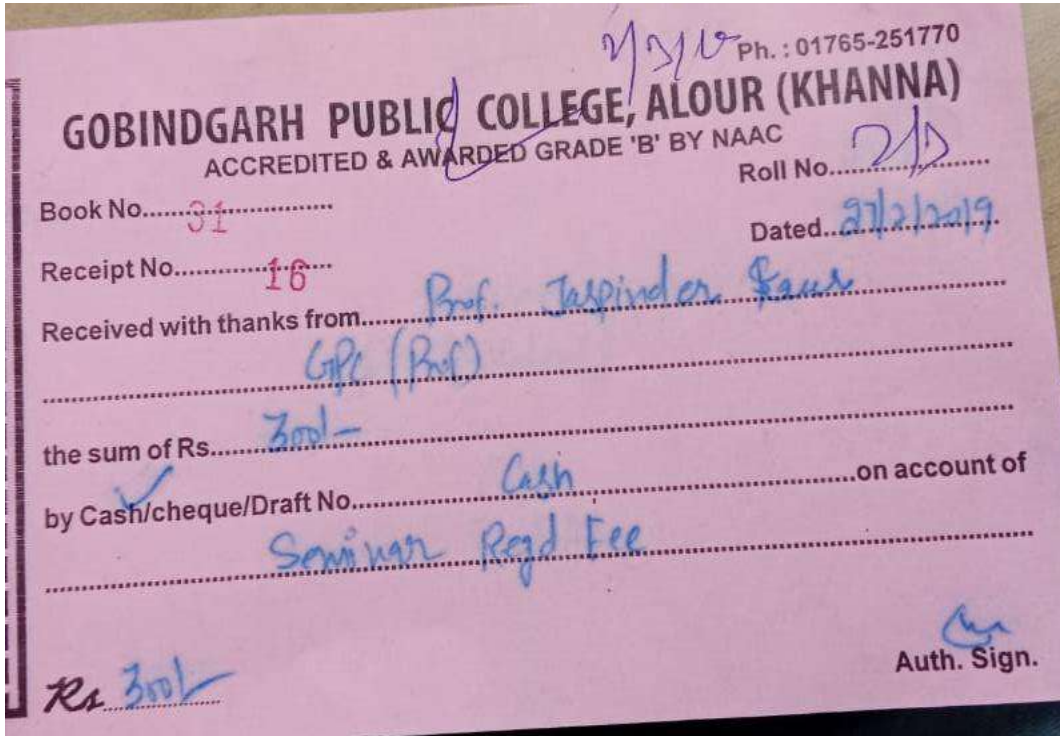 Ph. : 01765-251770
GOBINDGARH PUBLIC COLLEGE, ALOUR (KHANNA)
ACCREDITED & AWARDED GRADE 'B' BY NAAC
Roll No.
Book No. 31
Dated 27/2/2019
Receipt No. 16
Received with thanks from Prof. Jaspinder Kaur
GPC (Prof)
the sum of Rs. 300/-
by Cash/cheque/Draft No. Cash on account of
Seminar Regd Fee
Auth. Sign.
Rs 300/-